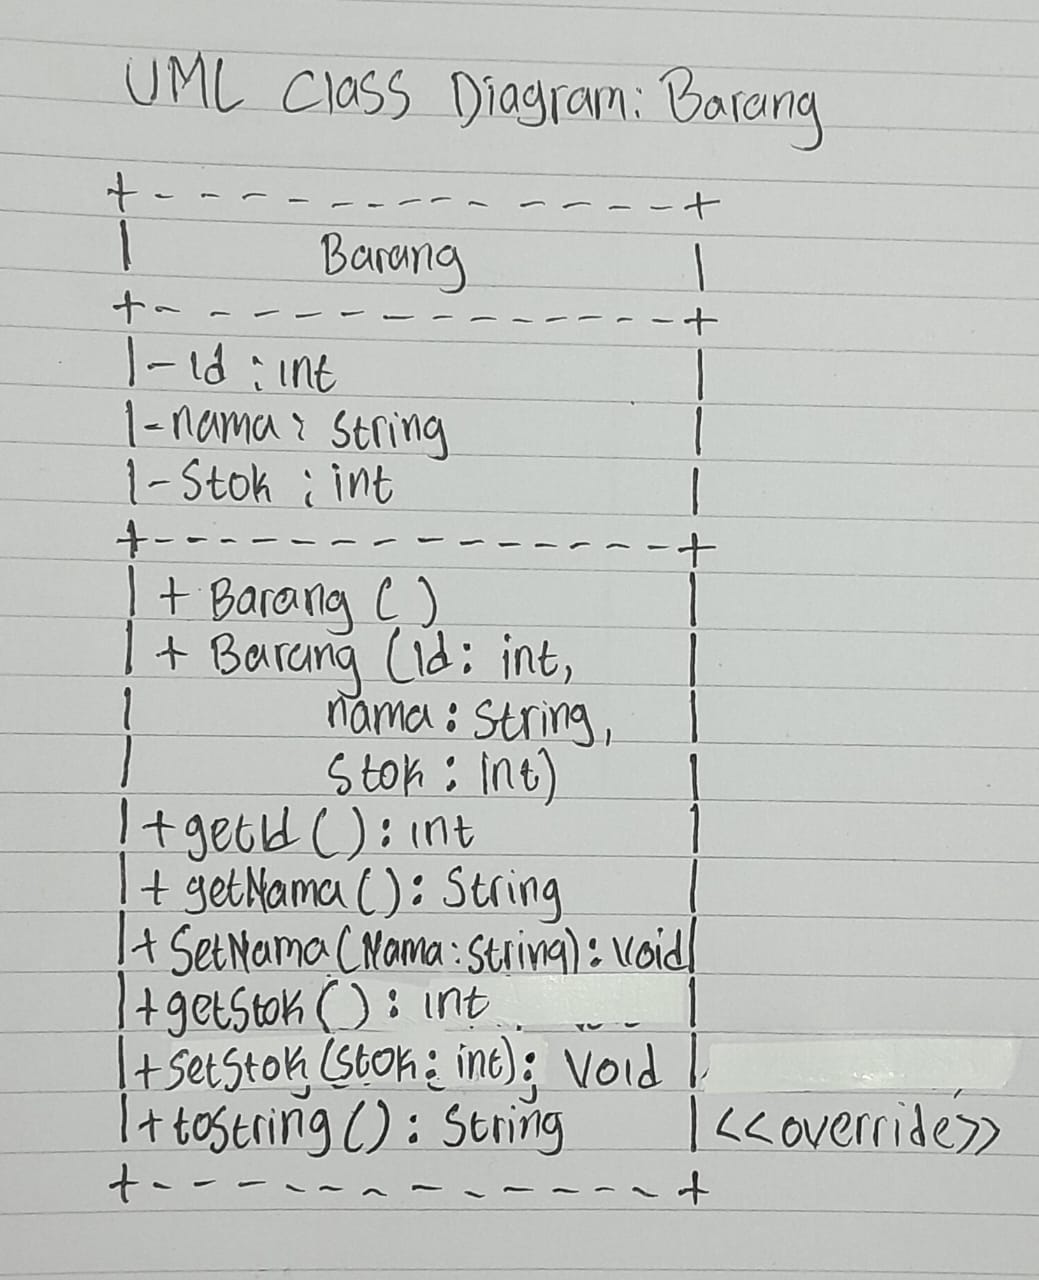 UML Class Diagram: Barang
+--------------+
| Barang |
+--------------+
|- id : int |
|- nama : String |
|- Stok : int |
+--------------+
| + Barang () |
| + Barang (id: int, |
| nama : String, |
| Stok : int) |
| + getId () : int |
| + getNama () : String |
| + SetNama (Nama : String) : Void |
| + getStok () : int |
| + SetStok (Stok : int) : Void |
| + toString () : String | <<override>>
+--------------+